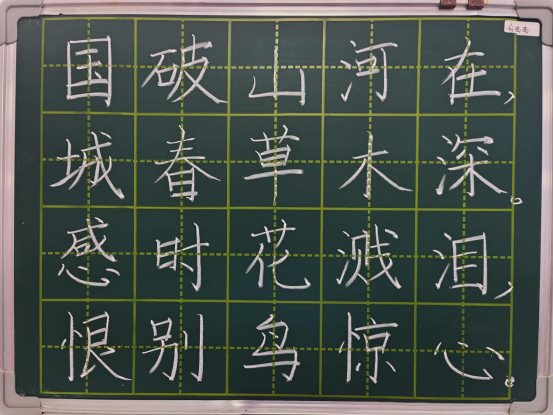 国破山河在，
城春草木深。
感时花溅泪，
恨别鸟惊心。